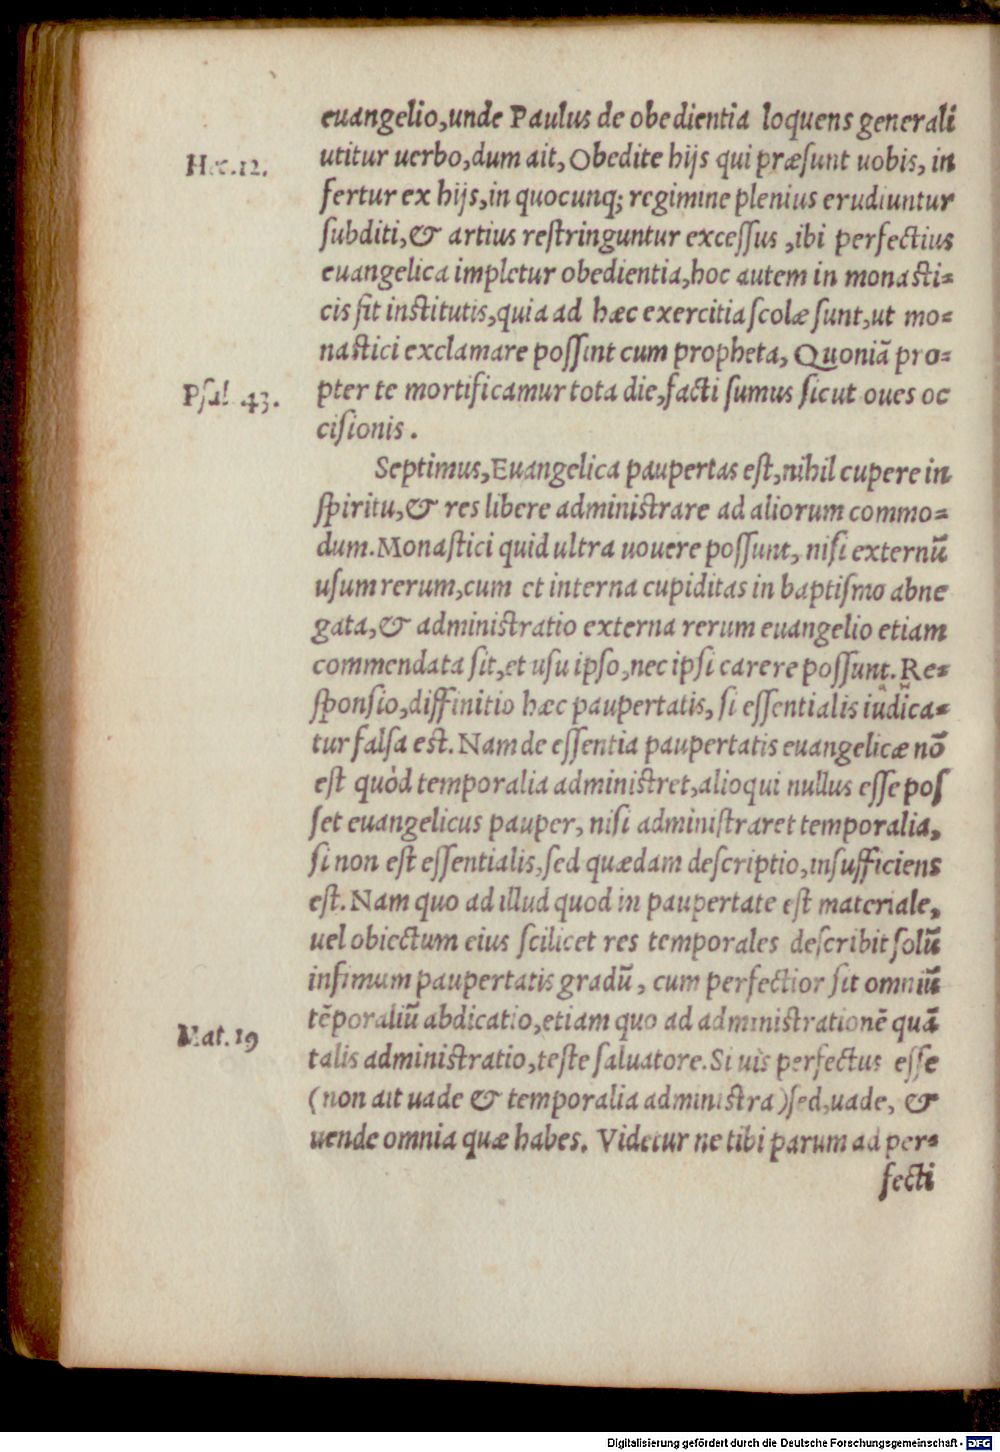 euangelio,unde Paulus de obedientia loquens generali
Hæc.12.
utitur uerbo,dum ait, Obedite hijs qui præsunt uobis, in
fertur ex hijs,in quocunq; regimine plenius erudiuntur
subditi,& artius restringuntur excessus ,ibi perfectius
euangelica impletur obedientia,hoc autem in monasti=
cis fit institutis,quia ad hæc exercitia scolæ sunt,ut mo=
nastici exclamare possint cum propheta, Quoniã pro=
Psal 43.
pter te mortificamur tota die,facti sumus sicut oues oc
cisionis .
Septimus,Euangelica paupertas est,nihil cupere in
spiritu,& res libere administrare ad aliorum commo=
dum.Monastici quid ultra uouere possunt, nisi externũ
usum rerum,cum et interna cupiditas in baptismo abne
gata,& administratio externa rerum euangelio etiam
commendata sit,et usu ipso,nec ipsi carere possunt. Re=
sponsio,diffinitio hæc paupertatis, si essentialis iudica=
tur falsa est. Nam de essentia paupertatis euangelicæ nõ
est quòd temporalia administret,alioqui nullus esse pos
set euangelicus pauper, nisi administraret temporalia,
si non est essentialis,sed quædam descriptio,insufficiens
est. Nam quo ad illud quod in paupertate est materiale,
uel obiectum eius scilicet res temporales describit solũ
infimum paupertatis gradũ, cum perfectior sit omniũ
tẽporaliũ abdicatio,etiam quo ad administrationẽ quã
Mat.19
talis administratio,teste saluatore.Si uis perfectus esse
(non ait uade & temporalia administra)sed,uade, &
uende omnia quæ habes. Videtur ne tibi parum ad per=
fecti
Digitalisierung gefördert durch die Deutsche Forschungsgemeinschaft - DFG